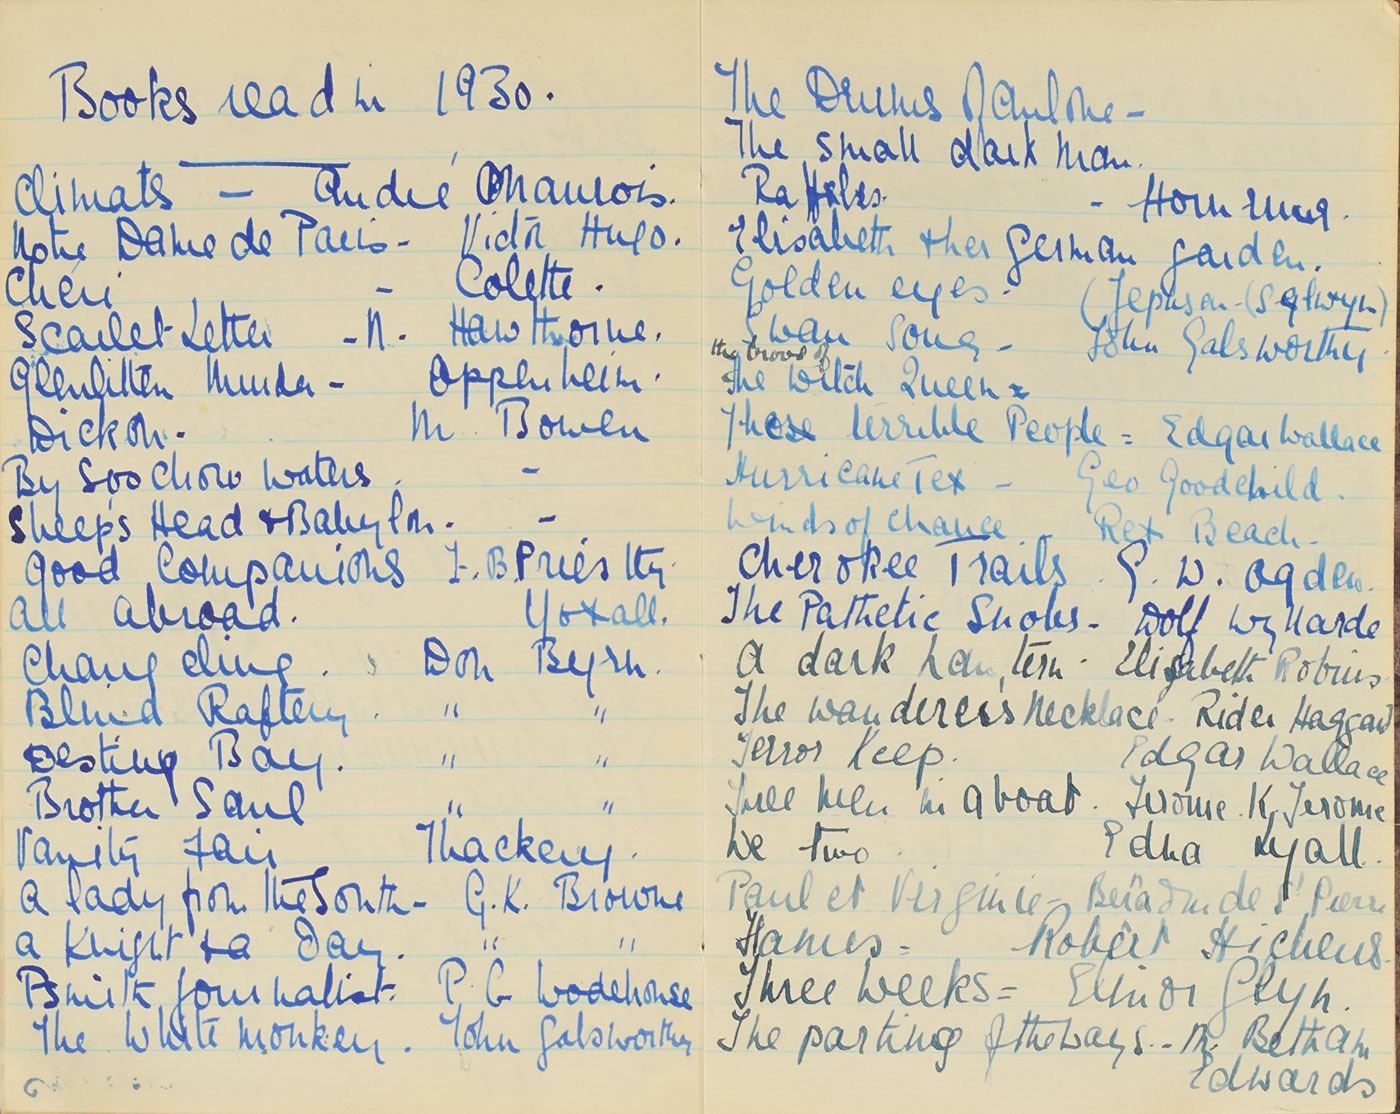 Books read in 1930.
Climats - André Maurois.
Notre Dame de Paris - Victor Hugo.
Chéri - Colette.
Scarlet Letter - N. Hawthorne.
Glenlitten Murder - Oppenheim.
Dickon. M. Bowen
By Soochow waters. -
Sheep's Head & Babylon. -
Good Companions J.B. Priestley.
All abroad. Yoxall.
Changeling. Don Byrn.
Blind Raftery. " "
Destiny Bay. " "
Brother Saul " "
Vanity Fair Thackery.
A lady from the South - G.K. Browne
A Knight & a Day. " "
Psmith Journalist. P G Wodehouse
The White Monkey. John Galsworthy
The Drums of Aulone -
The small dark man.
Raffles. - Hornung.
Elisabeth & her German garden.
Golden eyes - (Jephson - (Selwyn)
Swan Song - John Galsworthy.
the brood of
The Witch Queen =
Those terrible People = Edgar Wallace
Hurricane Tex - Geo Goodchild.
Winds of Chance Rex Beach -
Cherokee Trails. G. W. Ogden.
The Pathetic Snobs - Dolf Wyllarde
A dark lantern - Elizabeth Robins
The wanderer's Necklace - Rider Haggard
Terror Keep. Edgar Wallace
Three Men in a boat. Jerome. K. Jerome
We two. Edna Lyall.
Paul et Virginie - Bernardin de St Pierre
Flames = Robert Hichens.
Three Weeks = Elinor Glyn.
The parting of the ways - M. Betham
Edwards